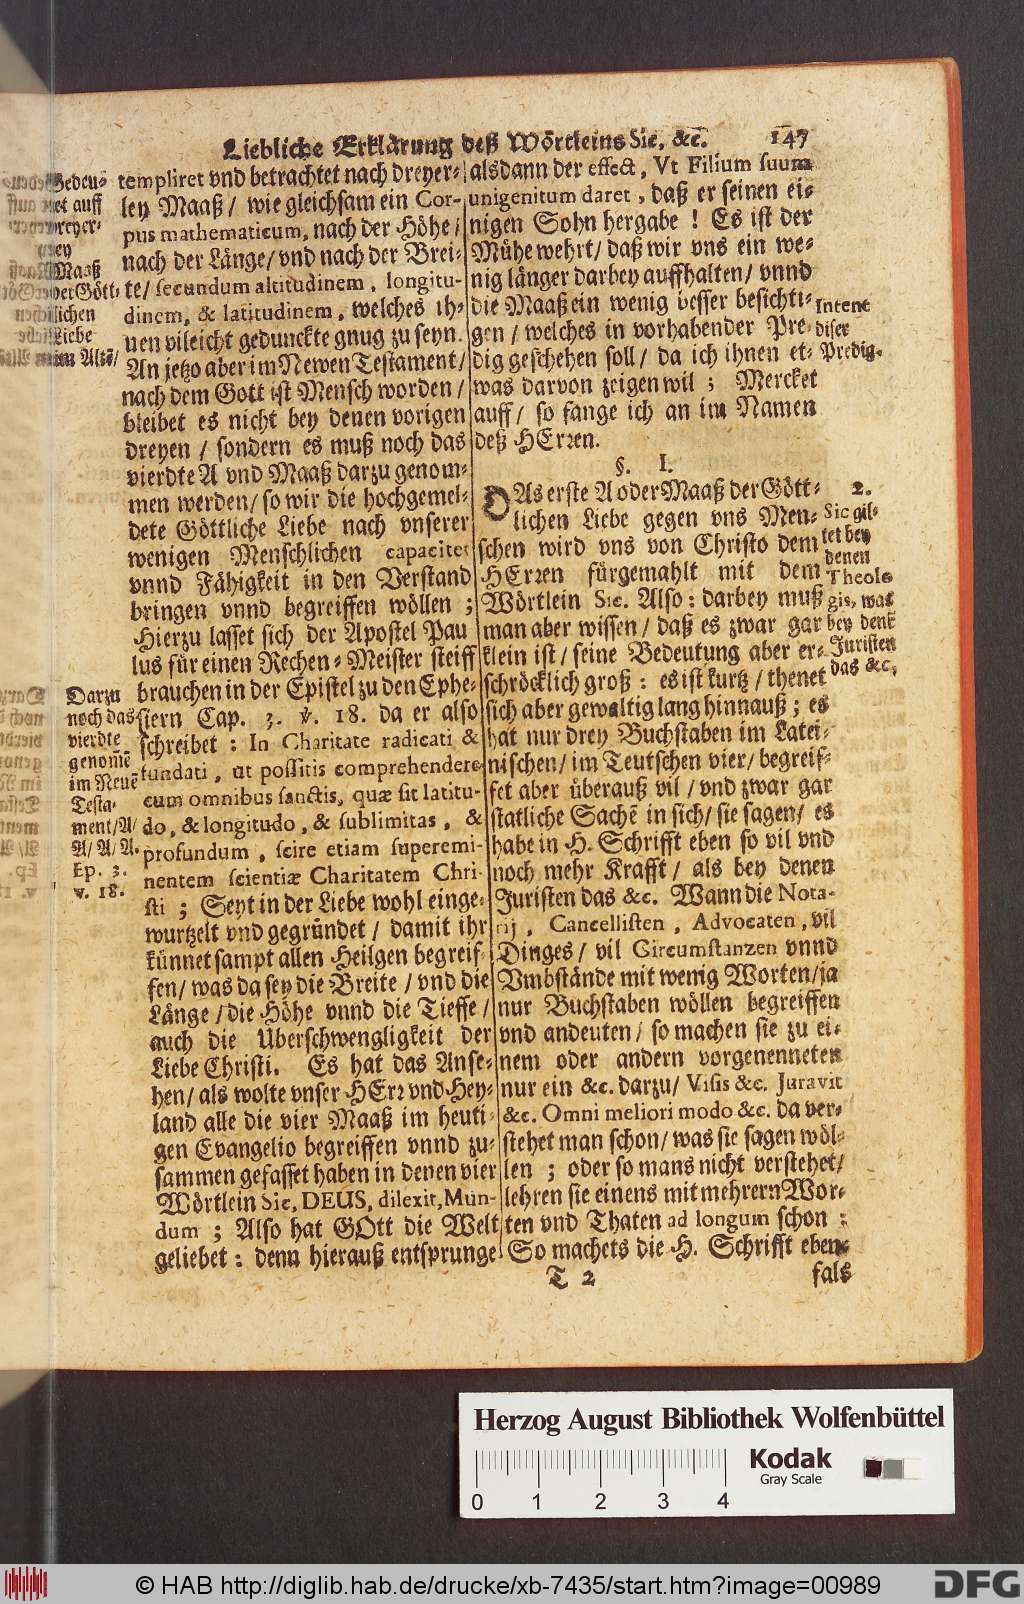 Liebliche Erklärung deß Wörtleins Sic, &c. 147
Gedeu-
auff
dreyer-
ley
Maaß
der Gött-
lichen
Liebe
im Altē/
templiret vnd betrachtet nach dreyer-
ley Maaß / wie gleichsam ein Cor-
pus mathematicum, nach der Höhe /
nach der Länge / vnd nach der Brei-
te / secundum altitudinem, longitu-
dinem, & latitudinem, welches ih-
nen vileicht gedunckte gnug zu seyn.
An jetzo aber im Newen Testament /
nach dem Gott ist Mensch worden /
bleibet es nicht bey denen vorigen
dreyen / sondern es muß noch das
vierdte A vnd Maaß darzu genom-
men werden / so wir die hochgemel-
dete Göttliche Liebe nach vnserer
wenigen Menschlichen capacitet
vnnd Fähigkeit in den Verstand
bringen vnnd begreiffen wöllen ;
Hierzu lasset sich der Apostel Pau
lus für einen Rechen-Meister steiff
brauchen in der Epistel zu den Ephe-
siern Cap. 3. v. 18. da er also
schreibet : In Charitate radicati &
fundati, ut possitis comprehendere
cum omnibus sanctis, quæ sit latitu-
do, & longitudo, & sublimitas, &
profundum, scire etiam superemi-
nentem scientiæ Charitatem Chri-
sti ; Seyt in der Liebe wohl einge-
wurtzelt vnd gegründet / damit ihr
künnet sampt allen Heilgen begreif-
fen / was da sey die Breite / vnd die
Länge / die Höhe vnnd die Tieffe /
auch die Uberschwengligkeit der
Liebe Christi. Es hat das Anse-
hen / als wolte vnser HErr vnd Hey-
land alle die vier Maaß im heuti-
gen Evangelio begreiffen vnnd zu-
sammen gefasset haben in denen vier
Wörtlein Sic, DEUS, dilexit, Mun-
dum ; Also hat GOtt die Welt
geliebet : denn hierauß entsprunge
Darzu
noch das
vierdte
genom̃e
im Neuē
Testa-
ment / A /
A / A / A.
Ep. 3.
v. 18.
alsdann der effect, Vt Filium suum
unigenitum daret, daß er seinen ei-
nigen Sohn hergabe ! Es ist der
Mühe wehrt / daß wir vns ein we-
nig länger darbey auffhalten / vnnd
die Maaß ein wenig besser besichti-
gen / welches in vorhabender Pre-
dig geschehen soll / da ich ihnen et-
was darvon zeigen wil ; Mercket
auff / so fange ich an im Namen
deß HErren.
§. I.
DAs erste A oder Maaß der Gött-
lichen Liebe gegen vns Men-
schen wird vns von Christo dem
HErren fürgemahlt mit dem
Wörtlein Sic. Also : darbey muß
man aber wissen / daß es zwar gar
klein ist / seine Bedeutung aber er-
schröcklich groß : es ist kurtz / thenet
sich aber gewaltig lang hinnauß ; es
hat nur drey Buchstaben im Latei-
nischen / im Teutschen vier / begreif-
fet aber überauß vil / vnd zwar gar
statliche Sachē in sich / sie sagen / es
habe in H. Schrifft eben so vil vnd
noch mehr Krafft / als bey denen
Juristen das &c. Wann die Nota-
rij, Cancellisten, Advocaten, vil
Dinges / vil Circumstanzen vnnd
Vmbstände mit wenig Worten / ja
nur Buchstaben wöllen begreiffen
vnd andeuten / so machen sie zu ei-
nem oder andern vorgenenneten
nur ein &c. darzu / Visis &c. Juravit
&c. Omni meliori modo &c. da ver-
stehet man schon / was sie sagen wöl-
len ; oder so mans nicht verstehet /
lehren sie einens mit mehrern Wor-
ten vnd Thaten ad longum schon :
So machets die H. Schrifft eben-
Intent
diser
Predig.
2.
Sic gil-
tet bey
denen
Theolo
gis, was
bey denē
Juristen
das &c.
T 2 fals
Herzog August Bibliothek Wolfenbüttel
Kodak
Gray Scale
0 1 2 3 4
© HAB http://diglib.hab.de/drucke/xb-7435/start.htm?image=00989
DFG